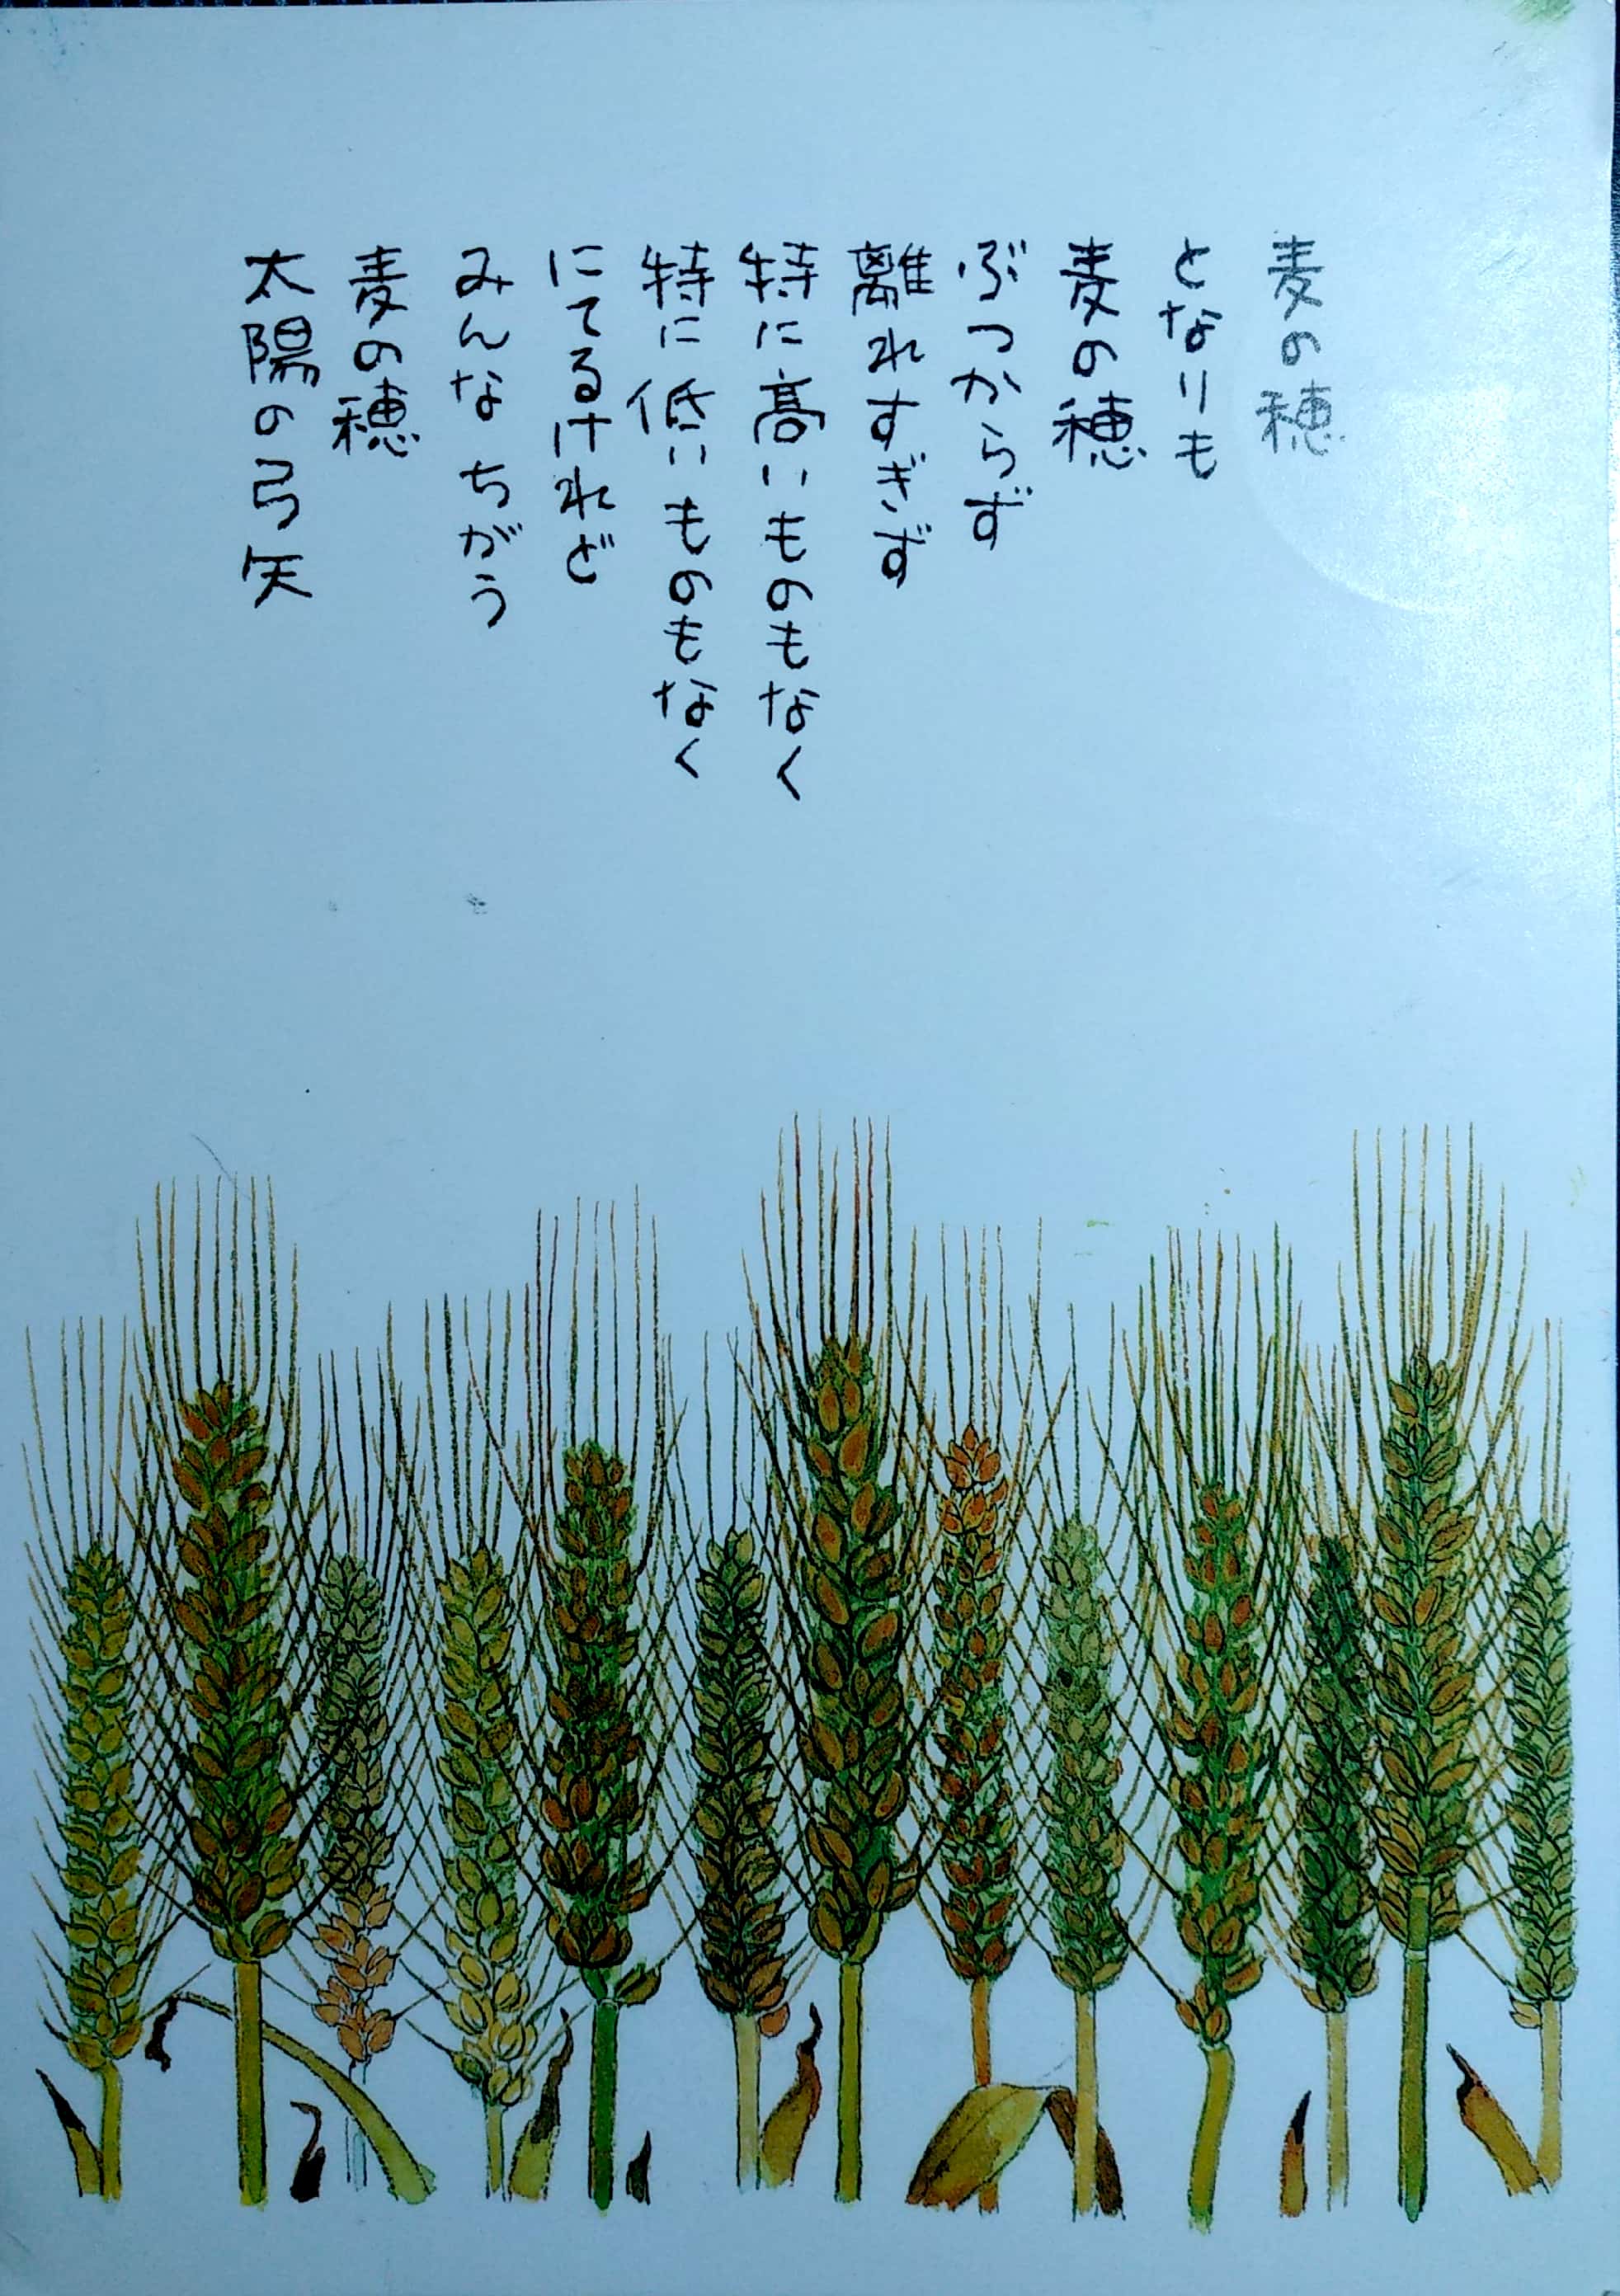 麦の穂
となりも
麦の穂
ぶつからず
離れすぎず
特に高いものもなく
特に低いものもなく
にてるけれど
みんなちがう
麦の穂
太陽の弓矢